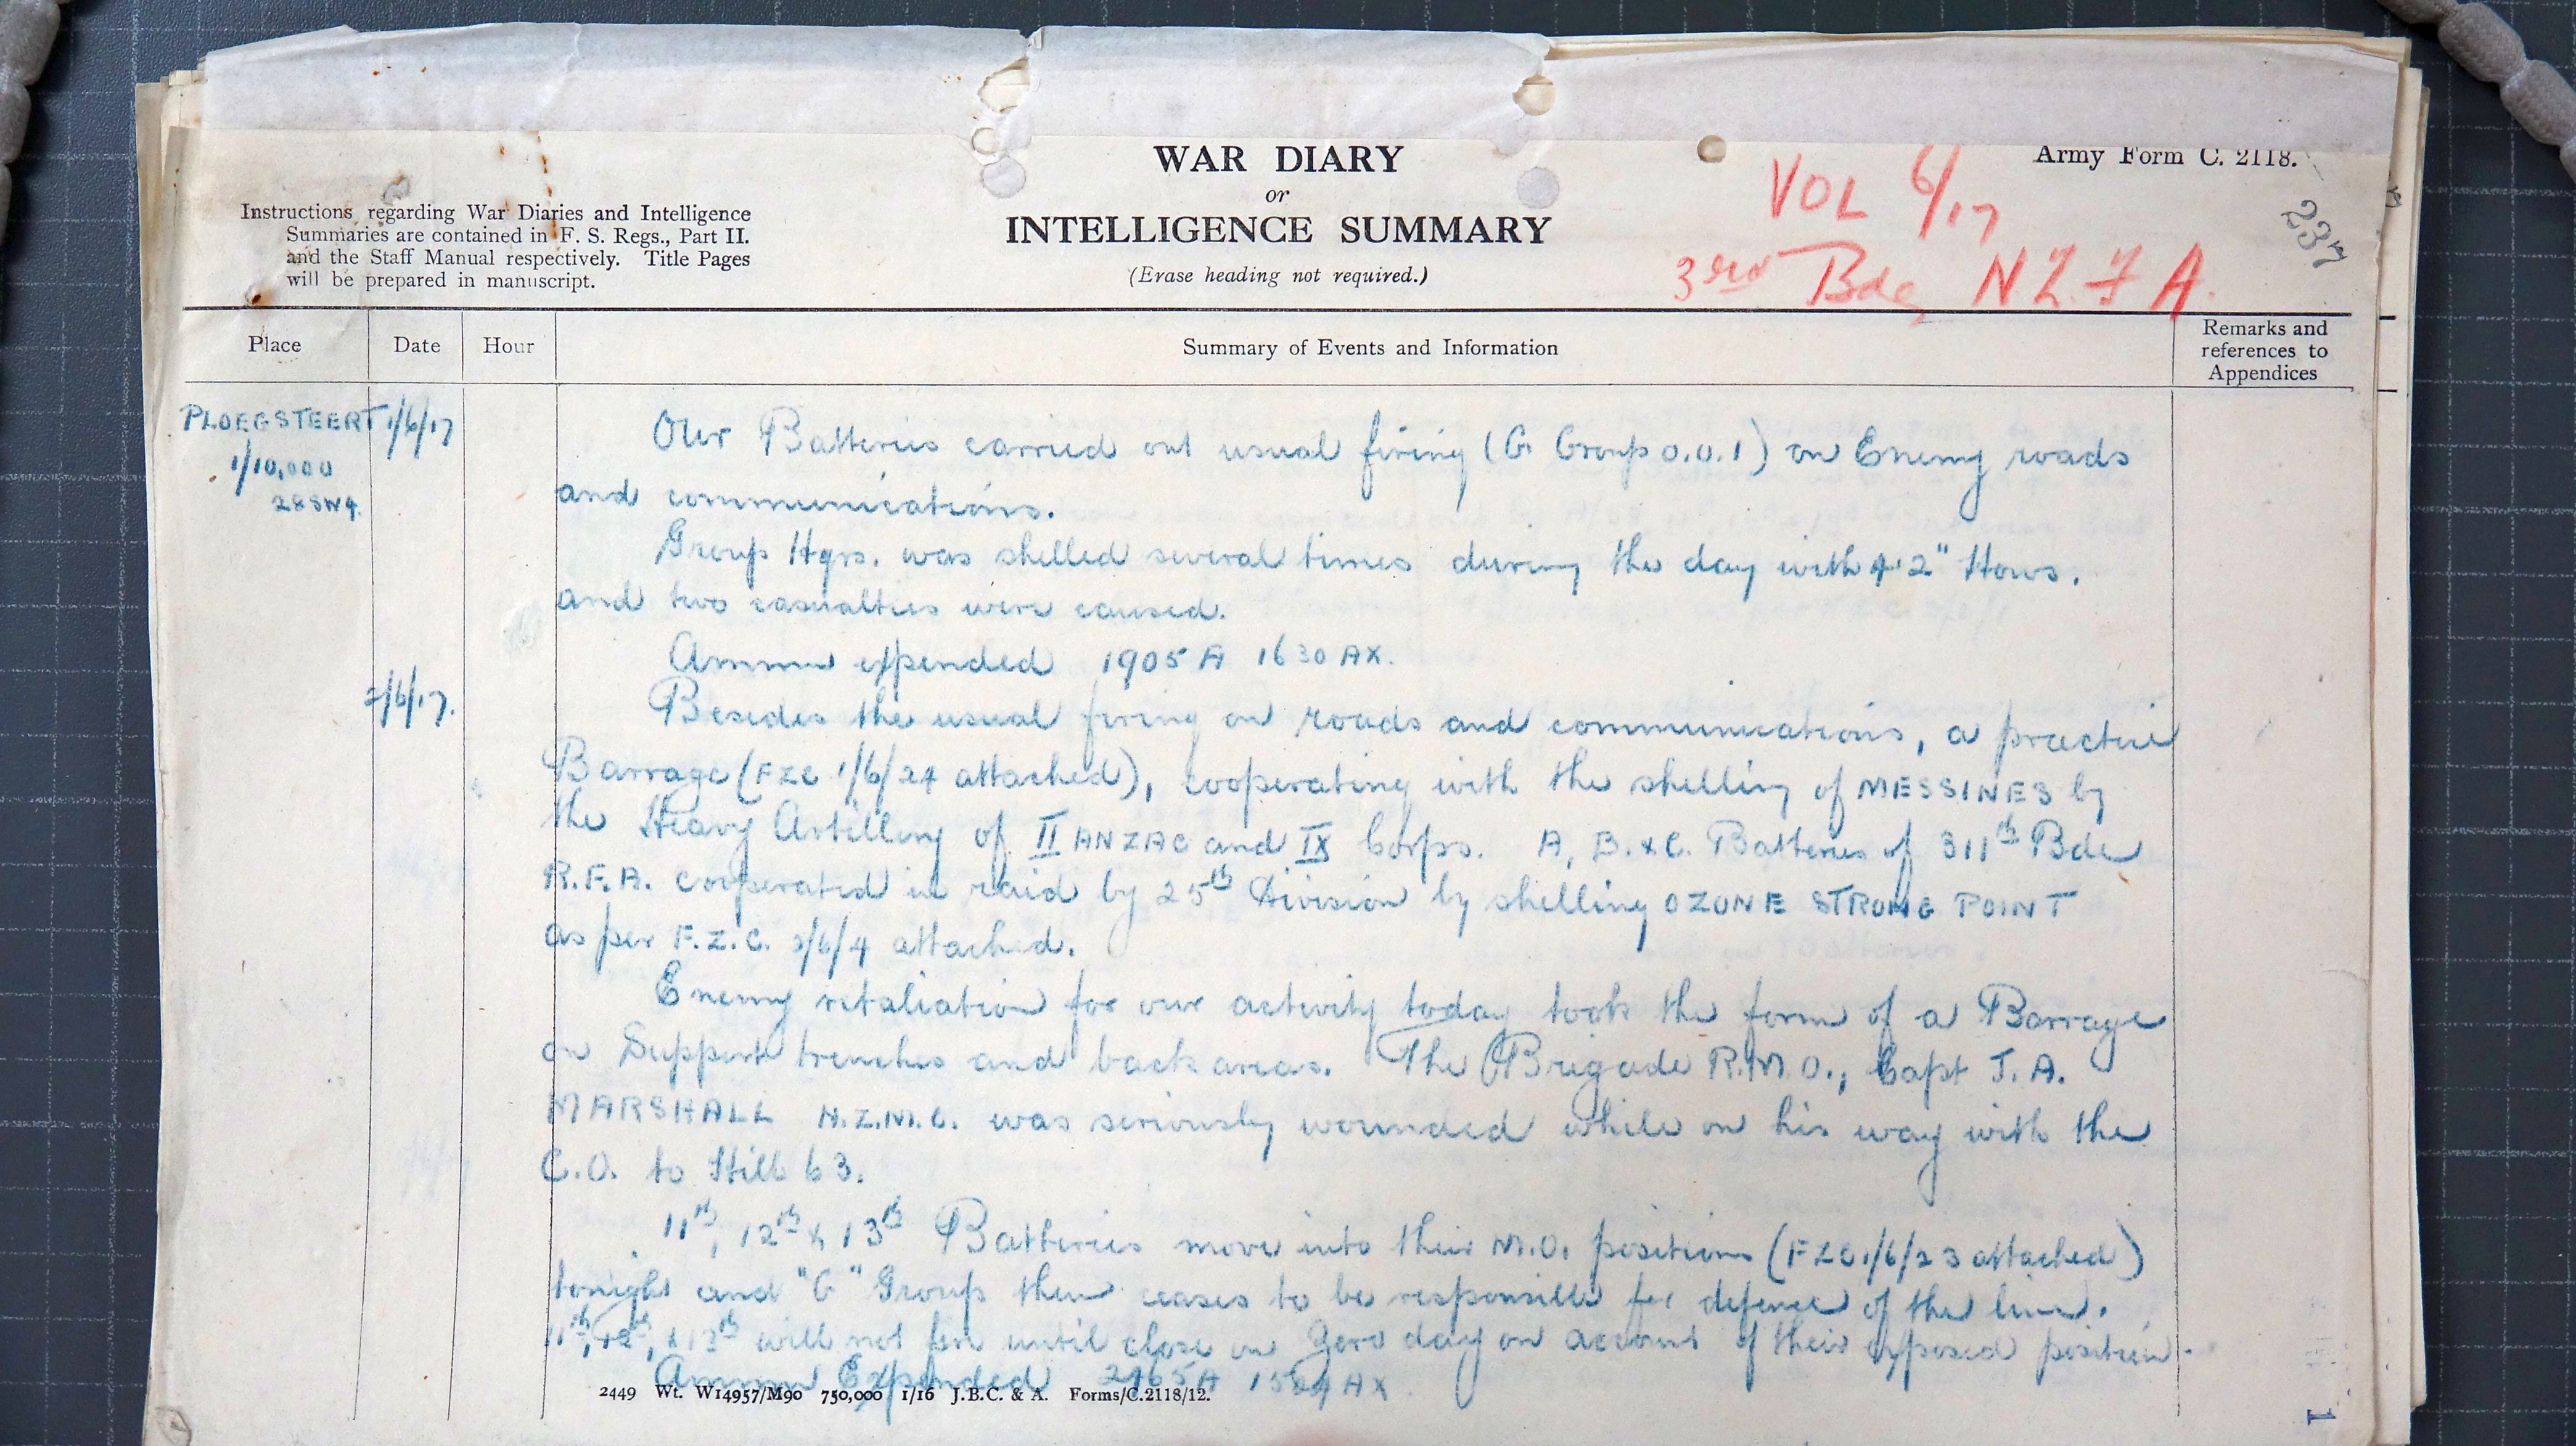 WAR DIARY
or
INTELLIGENCE SUMMARY
(Erase heading not required.)
Army Form C. 2118.
VOL 6/17
3rd Bde N Z. F A.
237
Instructions regarding War Diaries and Intelligence
Summaries are contained in F. S. Regs., Part II.
and the Staff Manual respectively. Title Pages
will be prepared in manuscript.
Place Date Hour Summary of Events and Information
Remarks and
references to
Appendices
PLOEGSTEERT 1/6/17
1/10,000
28 SW4.
Our Batteries carried out usual firing (G Group O.O.1) on Enemy roads
and communications.
Group Hqrs. was shelled several times during the day with 4.2" Hows.
and two casualties were caused.
Ammn expended 1905 A 1630 AX.
2/6/17. Besides the usual firing on roads and communications, a practice
Barrage (FZC 1/6/24 attached), cooperating with the shelling of MESSINES by
the Heavy Artillery of II ANZAC and IX Corps. A, B. & C. Batteries of 311th Bde
R.F.A. cooperated in raid by 25th Division by shelling OZONE STRONG POINT
as per F.Z.C. 2/6/4 attached.
Enemy retaliation for our activity today took the form of a Barrage
on Support trenches and back areas. The Brigade R.M.O., Capt J. A.
MARSHALL N.Z.M.C. was seriously wounded while on his way with the
C.O. to Hill 63.
11th, 12th & 13th Batteries move into their M.O. positions (FZC 1/6/23 attached)
tonight and "G" Group then ceases to be responsible for defence of the line.
11th, 12th, & 13th will not fire until close on Zero day on account of their exposed position.
Ammn Expended 2465 A AX
2449 Wt. W14957/M90 750,000 1/16 J.B.C. & A. Forms/C.2118/12.
1